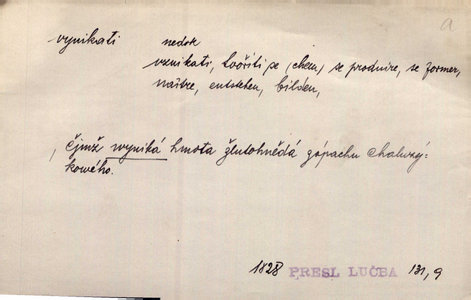 a
vynikati nedok
vznikati, tvořiti se (chem) se produire, se former,
naître, entstehen, bilden,
, čjmž wyniká hmota žlutohnědá zápachu chaluzy-
kowého.
1828 PRESL LUČBA 131,9